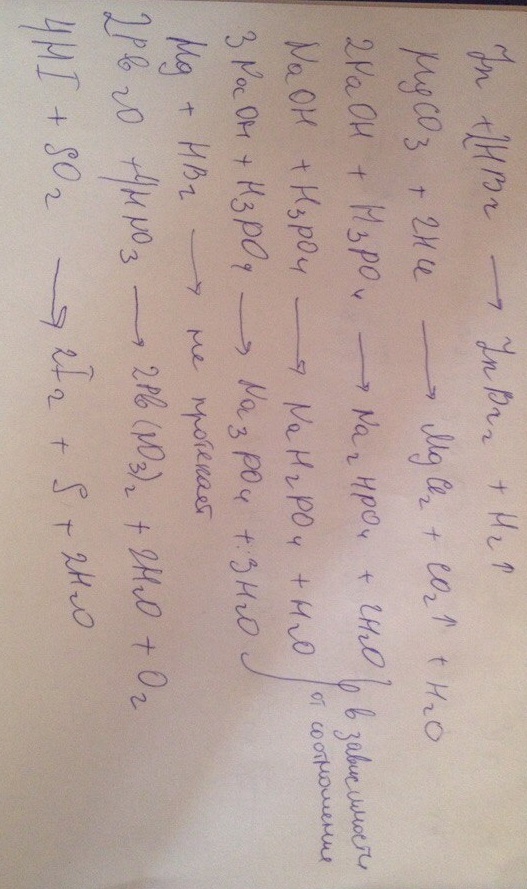 Zn + 2HBr → ZnBr2 + H2↑
MgCO3 + 2HCl → MgCl2 + CO2↑ + H2O
2NaOH + H3PO4 → Na2HPO4 + 2H2O
NaOH + H3PO4 → NaH2PO4 + H2O
3NaOH + H3PO4 → Na3PO4 + 3H2O
в зависимости
от соотношения
Hg + HBr → не протекает
2PbO2 + 4HNO3 → 2Pb(NO3)2 + 2H2O + O2
4HI + SO2 → 2I2 + S + 2H2O